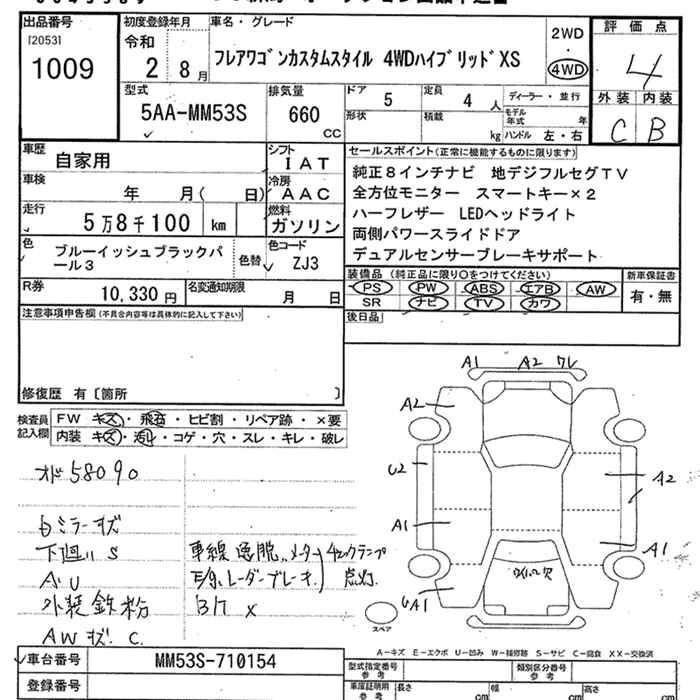 出品番号
[2053]
1009
初度登録年月
令和
2 8月
車名・グレード
フレアワゴンカスタムスタイル 4WDハイブリッドXS
2WD
・
4WD
評価点
4
外装 内装
C B
型式
5AA-MM53S
排気量
660
cc
ドア
5
定員
4 人
形状
積載
kg
ディーラー・並行
モデル年式 年
ハンドル 左・右
車歴
自家用
シフト
IAT
車検
年 月( 日)
冷房
AAC
走行
5万8千100 km
燃料
ガソリン
色
ブルーイッシュブラックパール3
色替
色コード
ZJ3
R券
10,330円
名変通知期限
月 日
セールスポイント(正常に機能するものに限ります)
純正8インチナビ 地デジフルセグTV
全方位モニター スマートキー×2
ハーフレザー LEDヘッドライト
両側パワースライドドア
デュアルセンサーブレーキサポート
装備品(純正品に限り○をつけてください)
PS PW ABS エアB AW
SR ナビ TV カワ
新車保証書
有・無
後日品
注意事項申告欄(不具合内容等は具体的に記入して下さい)
修復歴 有〔箇所 〕
検査員記入欄
FW キズ・飛石・ヒビ割・リペア跡・×要
内装 キズ・汚れ・コゲ・穴・スレ・キレ・破レ
オド58090
右ミラーキズ
下廻りS
AU
外装鉄粉
AWキズ C.
車線逸脱 メーター チェックランプ
レーダーブレーキ 点灯
A1 A2 ワレ
A2
U2
A2
A1
A1
UA1
ワイパー欠
スペア
A-キズ E-エクボ U-凹み W-補修跡 S-サビ C-腐食 XX-交換済
車台番号
MM53S-710154
登録番号
型式指定番号
参考
類別区分番号
参考
車庫証明用
参考
長さ cm
幅 cm
高さ cm